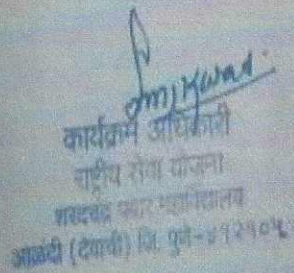 कार्यक्रम अधिकारी
राष्ट्रीय सेवा योजना
शरदचंद्र पवार महाविद्यालय
आळंदी (देवाची) जि. पुणे-४१२१०५